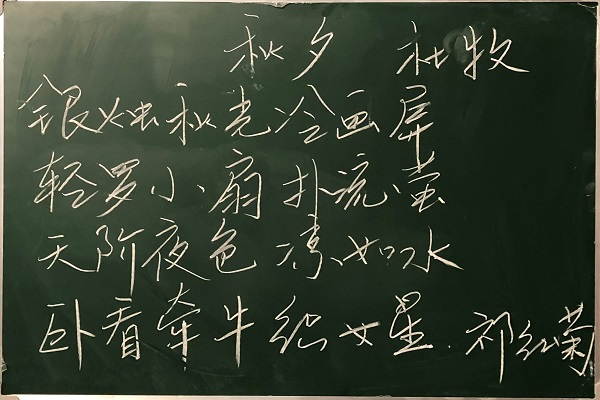 秋夕 杜牧
银烛秋光冷画屏
轻罗小扇扑流萤
天阶夜色凉如水
卧看牵牛织女星 祁红菊